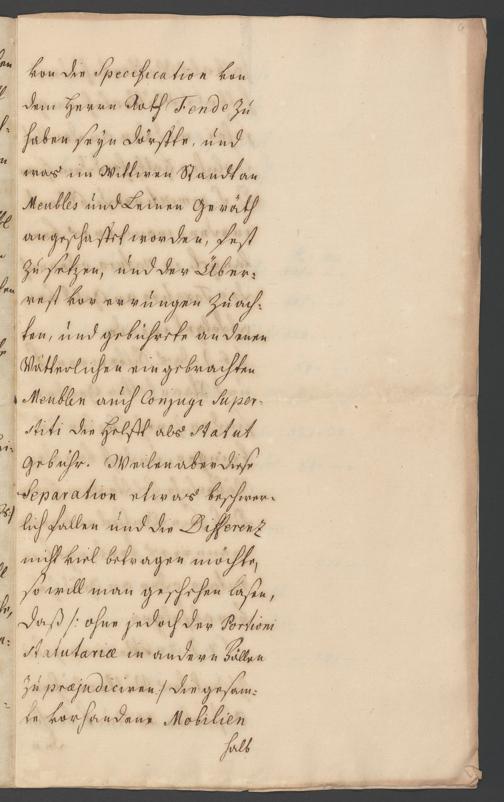 von die Specification von
dem Herrn Rath Fende zu
haben seyn dörffte, und
was im Wittiven Standt an
Meubles und Leinen Geräth
angeschafft worden, fest
zu setzen, und der Über-
rest vor errungen zu ach-
ten, und gebührete an denen
Vätterlichen eingebrachten
Meublen auch Conjugi Super-
stiti die Helfft als Statut
gebühr. Weilen aber diese
Separation etwas beschwer-
lich fallen und die Differenz
nicht viel betragen möchte,
so will man geschehen lasen,
daß /: ohne jedoch der Portioni
Statutariæ in andern Fällen
zu præjudiciren :/ die gesam-
te vorhandene Mobilien
halb